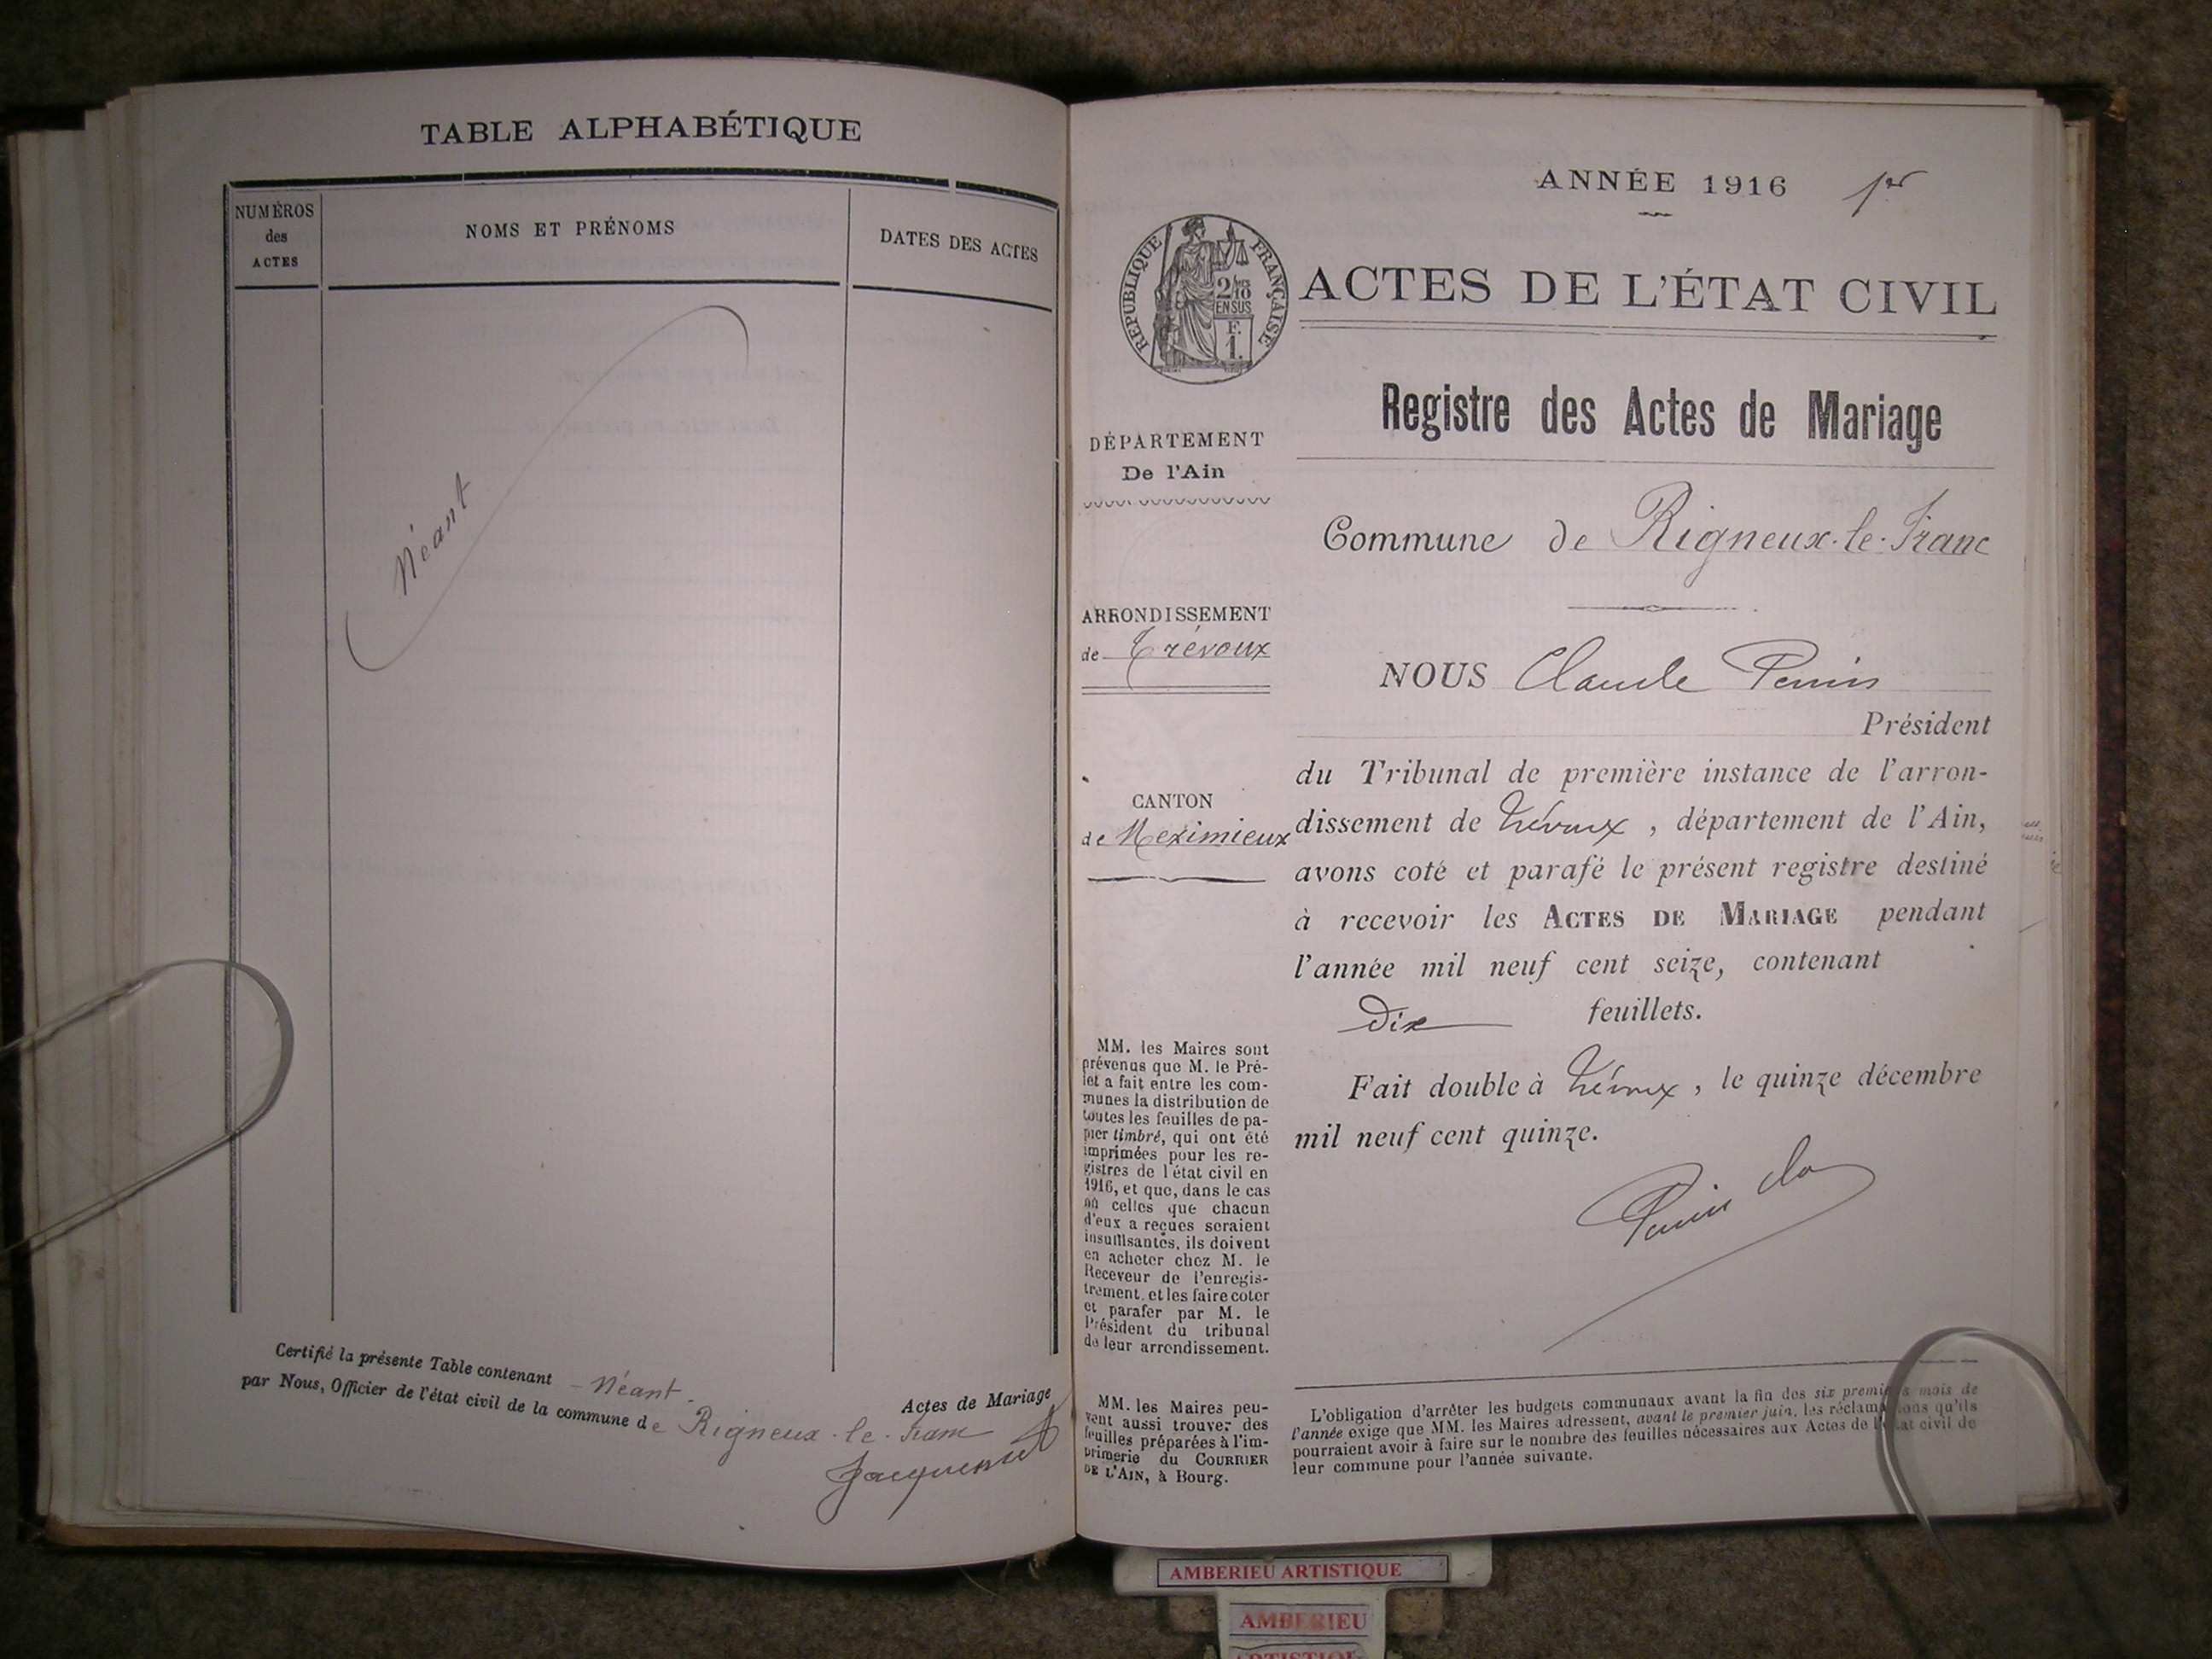 TABLE ALPHABÉTIQUE
NUMÉROS
des
ACTES
NOMS ET PRÉNOMS
DATES DES ACTES
Néant
Certifié la présente Table contenant Néant Actes de Mariage
par Nous, Officier de l'état civil de la commune de Rigneux-le-Franc
ANNÉE 1916 1er
RÉPUBLIQUE FRANÇAISE
2/10
EN SUS
F.
1.
ACTES DE L'ÉTAT CIVIL
Registre des Actes de Mariage
DÉPARTEMENT
De l'Ain
Commune de Rigneux-le-Franc
ARRONDISSEMENT
de Trévoux
NOUS Claude Perrin
Président
CANTON
de Meximieux
du Tribunal de première instance de l'arron-
dissement de Trévoux, département de l'Ain,
avons coté et parafé le présent registre destiné
à recevoir les ACTES DE MARIAGE pendant
l'année mil neuf cent seize, contenant
Dix feuillets.
Fait double à Trévoux, le quinze décembre
mil neuf cent quinze.
MM. les Maires sont
prévenus que M. le Pré-
fet a fait entre les com-
munes la distribution de
toutes les feuilles de pa-
pier timbré, qui ont été
imprimées pour les re-
gistres de l'état civil en
1916, et que, dans le cas
où celles que chacun
d'eux a reçues seraient
insuffisantes, ils doivent
en acheter chez M. le
Receveur de l'enregis-
trement, et les faire coter
et parafer par M. le
Président du tribunal
de leur arrondissement.
MM. les Maires peu-
vent aussi trouver des
feuilles préparées à l'im-
primerie du COURRIER
DE L'AIN, à Bourg.
L'obligation d'arrêter les budgets communaux avant la fin des six premiers mois de
l'année exige que MM. les Maires adressent, avant le premier juin, les réclamations qu'ils
pourraient avoir à faire sur le nombre des feuilles nécessaires aux Actes de l'état civil de
leur commune pour l'année suivante.
AMBERIEU ARTISTIQUE
AMBERIEU
ARTISTIQUE